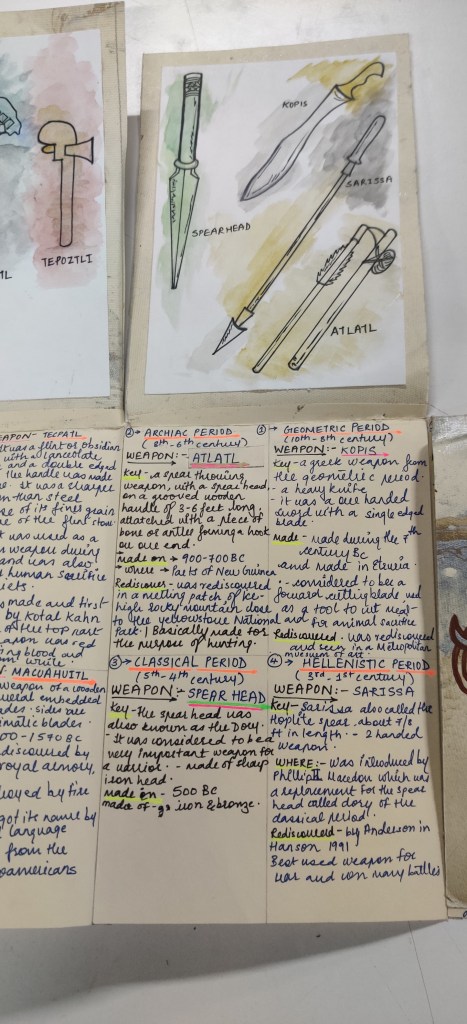 TEPOZTLI
KOPIS
SARISSA
SPEARHEAD
ATLATL
TL
EAPON:- TECPATL
it was a flint or obsidian
with a lanceolate
and a double edged
the handle was made
it was a cheaper
than steel
of its fine grain
of the flint stone
was used as a
weapon during
and was also
human sacrifice
made and first
by kotal kahn
of the top part
weapon was red
blood and
white
MACUAHUITL
weapon of a wooden
several embedded
blades. sides are
prismatic blades.
00-1570 BC
discovered by
royal armory,
royed by fire
got its name by
language
from the
oamericans
② ARCHIAC PERIOD
(8th-6th century)
WEAPON:- ATLATL
Key - a spear throwing
weapon, with a spear head,
on a grooved wooden
handle of 3-6 feet long,
attatched with a piece of
bone or antler forming a hook
on one end.
made on → 900-700 BC
where → Parts of New Guinea
Rediscover - was rediscovered
in a melting patch of ice-
high rocky mountain close
to the yellowstone National
Park. | Basically made for
the purpose of hunting.
① GEOMETRIC PERIOD
(10th-8th century)
WEAPON: KOPIS
Key - a greek weapon from
the geometric period.
- a heavy knife
- it was a one handed
sword with a single edged
blade.
made - made during the 7th
century BC
- and made in Etruria.
- considered to be a
foward cutting blade used
as a tool to cut meat
and for animal sacrifice
Rediscovered - was rediscovered
and seen in a Metropolitan
museum of art.
③ CLASSICAL PERIOD
(5th-4th century)
WEAPON:- SPEAR HEAD
Key - the spear head was
also known as the Dory.
- it was considered to be a
very important weapon for
a warrior. - made of sharp
iron head.
made on - 500 BC
made of - iron & bronze.
④ HELLENISTIC PERIOD
(3rd-1st century)
WEAPON:- SARISSA
Key - Sarissa also called the
Hoplite spear. about 7/8
ft in length. - 2 handed
weapon.
WHERE:- was introduced by
Phillip II Macedon which was
a replacement for the spear
head called dory of the
classical period.
Rediscovered - by Anderson in
Hanson 1991
Best used weapon for
war and won many battles